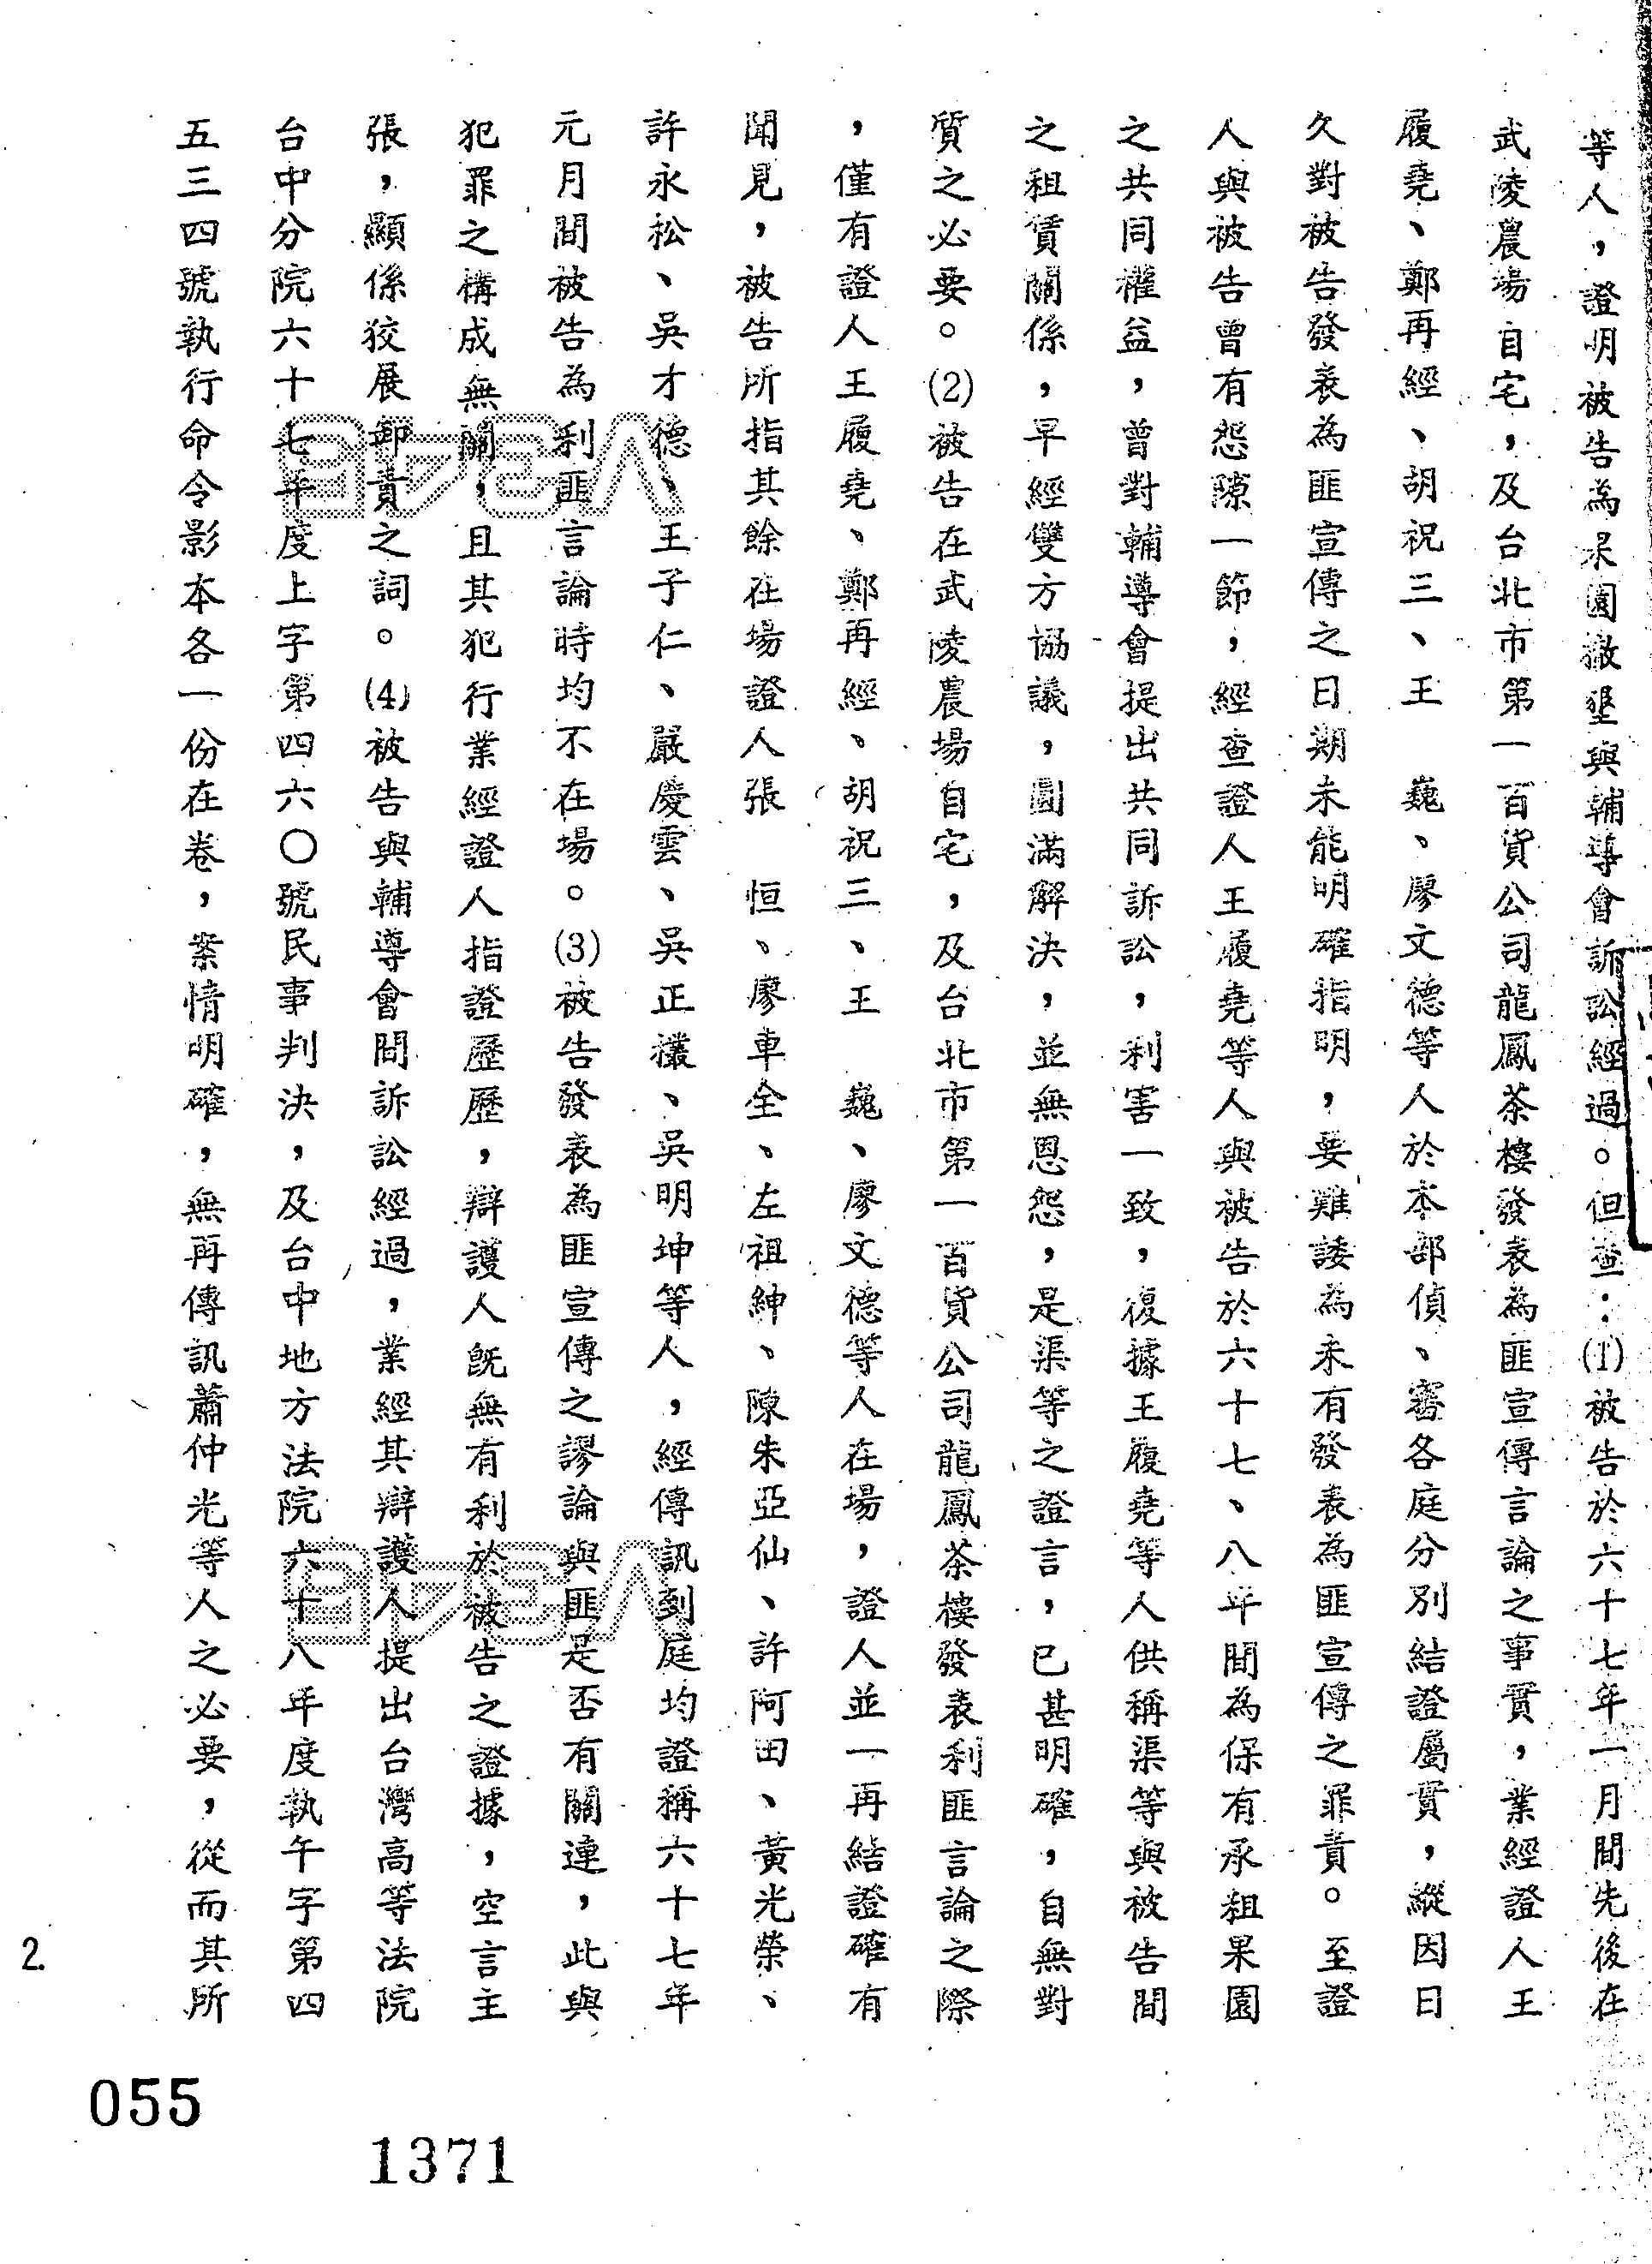 等人，證明被告為果園撤墾與輔導會訴訟經過。但查：(1)被告於六十七年一月間先後在
武陵農場自宅，及台北市第一百貨公司龍鳳茶樓發表為匪宣傳言論之事實，業經證人王
履堯、鄭再經、胡祝三、王　巍、廖文德等人於本部偵、審各庭分別結證屬實，縱因日
久對被告發表為匪宣傳之日期未能明確指明，要難諉為未有發表為匪宣傳之罪責。至證
人與被告曾有怨隙一節，經查證人王履堯等人與被告於六十七、八年間為保有承租果園
之共同權益，曾對輔導會提出共同訴訟，利害一致，復據王履堯等人供稱渠等與被告間
之租賃關係，早經雙方協議，圓滿解決，並無恩怨，是渠等之證言，已甚明確，自無對
質之必要。(2)被告在武陵農場自宅，及台北市第一百貨公司龍鳳茶樓發表利匪言論之際
，僅有證人王履堯、鄭再經、胡祝三、王　巍、廖文德等人在場，證人並一再結證確有
聞見，被告所指其餘在場證人張　恒、廖車全、左祖紳、陳朱亞仙、許阿田、黃光榮、
許永松、吳才德、王子仁、嚴慶雲、吳正灢、吳明坤等人，經傳訊到庭均證稱六十七年
元月間被告為利匪言論時均不在場。(3)被告發表為匪宣傳之謬論與匪是否有關連，此與
犯罪之構成無關，且其犯行業經證人指證歷歷，辯護人既無有利於被告之證據，空言主
張，顯係狡展卸責之詞。(4)被告與輔導會間訴訟經過，業經其辯護人提出台灣高等法院
台中分院六十七年度上字第四六〇號民事判決，及台中地方法院六十八年度執午字第四
五三四號執行命令影本各一份在卷，案情明確，無再傳訊蕭仲光等人之必要，從而其所
2.
055
1371
V34E
V34E